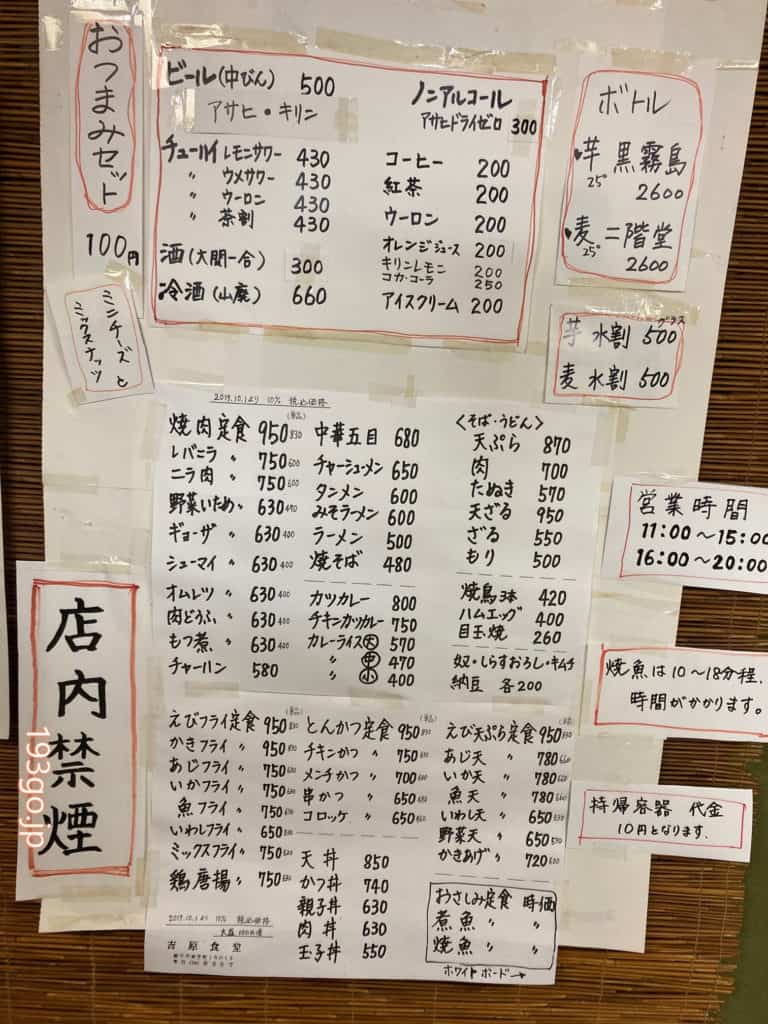 おつまみセット
100円
ミニチーズと
ミックスナッツ
ビール(中びん) 500
アサヒ・キリン
チューハイ レモンサワー 430
〃 ウメサワー 430
〃 ウーロン 430
〃 茶割 430
酒(大関一合) 300
冷酒(山廃) 660
ノンアルコール
アサヒドライゼロ 300
コーヒー 200
紅茶 200
ウーロン 200
オレンジジュース 200
キリンレモン 200
コカ・コーラ 250
アイスクリーム 200
ボトル
芋 25° 黒霧島
2600
麦 25° 二階堂
2600
グラス
芋 水割 500
麦 水割 500
2019.10.1より 10% 税込価格
(単品)
焼肉定食 950 830
レバニラ 〃 750 600
ニラ肉 〃 750 600
野菜いため 〃 630 470
ギョーザ 〃 630 400
シューマイ 〃 630 400
オムレツ 〃 630 400
肉どうふ 〃 630 400
もつ煮 〃 630 400
チャーハン 580
中華五目 680
チャーシューメン 650
タンメン 600
みそラーメン 600
ラーメン 500
焼そば 480
カツカレー 800
チキンカツカレー 750
カレーライス 大 570
〃 中 470
〃 小 400
<そば・うどん>
天ぷら 870
肉 700
たぬき 570
天ざる 950
ざる 550
もり 500
焼鳥3本 420
ハムエッグ 400
目玉焼 260
奴・しらすおろし・キムチ
納豆 各200
(単品)
えびフライ定食 950 830
かきフライ 〃 950
あじフライ 〃 750
いかフライ 〃 750
魚フライ 〃 750
いわしフライ 〃 650
ミックスフライ 〃 750
鶏唐揚 〃 750
2019.10.1より 10% 税込価格
大盛 100円増
吉原食堂
(単品)
とんかつ定食 950
チキンかつ 〃 750
メンチかつ 〃 700
串かつ 〃 650
コロッケ 〃 650
天丼 850
かつ丼 740
親子丼 630
肉丼 630
玉子丼 550
(単品)
えび天ぷら定食 950
あじ天 〃 780
いか天 〃 780
魚天 〃 780
いわし天 〃 650
野菜天 〃 650
かきあげ 〃 720
おさしみ定食 時価
煮魚 〃 〃
焼魚 〃 〃
ホワイトボード→
営業時間
11:00〜15:00
16:00〜20:00
焼魚は10〜18分程、
時間がかかります。
持帰容器 代金
10円となります.
店内禁煙
193go.jp